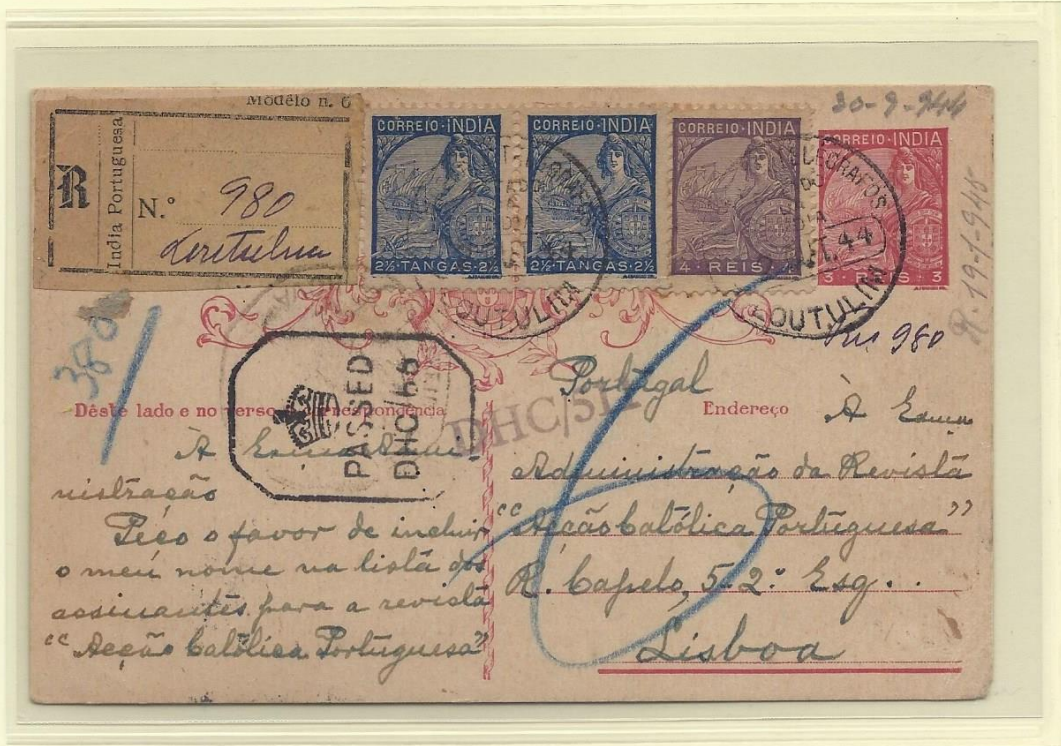 Modêlo n. 6
30-9-944
R
India Portuguesa
N.º 980
Loutulim
CORREIO·INDIA
2½·TANGAS·2½
CORREIO·INDIA
2½·TANGAS·2½
CORREIO·INDIA
4·REIS·4
CORREIO·INDIA
3 REIS 3
LOUTULIM
44
LOUTULIM
R. 19-1-945
980
380
PASSED
DHC/66
DHC/5
Portugal
Dêste lado e no verso correspondência
À Exma Admi-
nistração
Peço o favor de incluir
o meu nome na lista dos
assinantes para a revista
"Acção Católica Portuguesa"
Endereço
À Exma
Administração da Revista
"Acção Católica Portuguesa"
R. Capelo, 5-2º Esq..
Lisboa